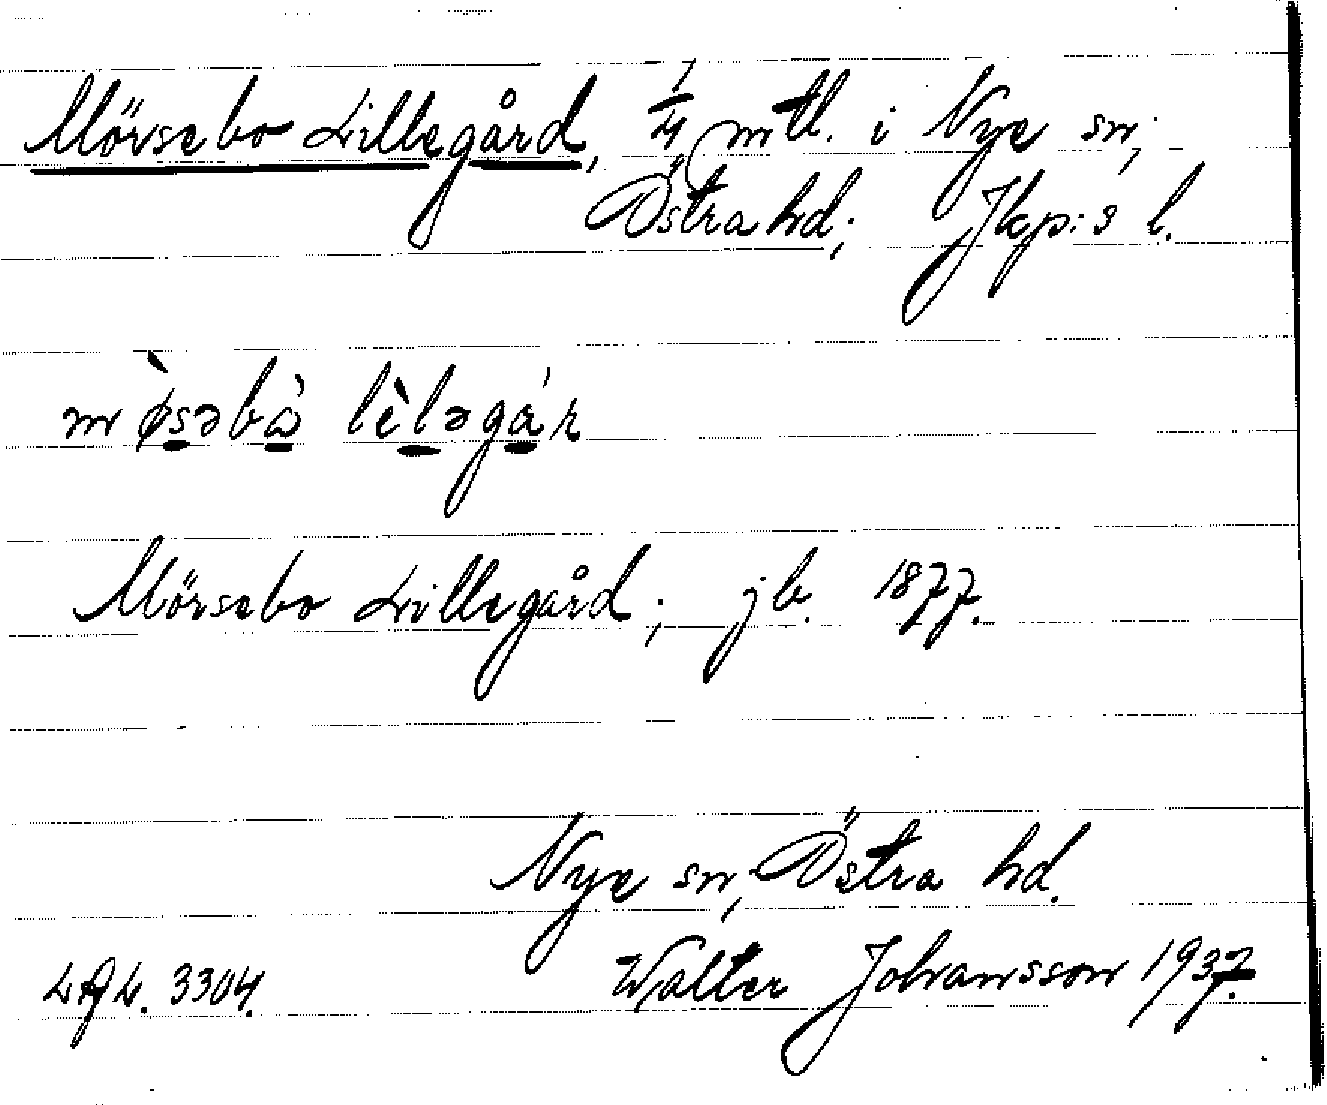 Mörsebo Lillegård, 1/4 mtl. i Nye sn,
Östra hd; Jkp:s l.
mø̀səbò lèləgár
Mörsebo Lillegård; jb. 1877.
Nye sn, Östra hd.
Walter Johansson 1937.
3304.